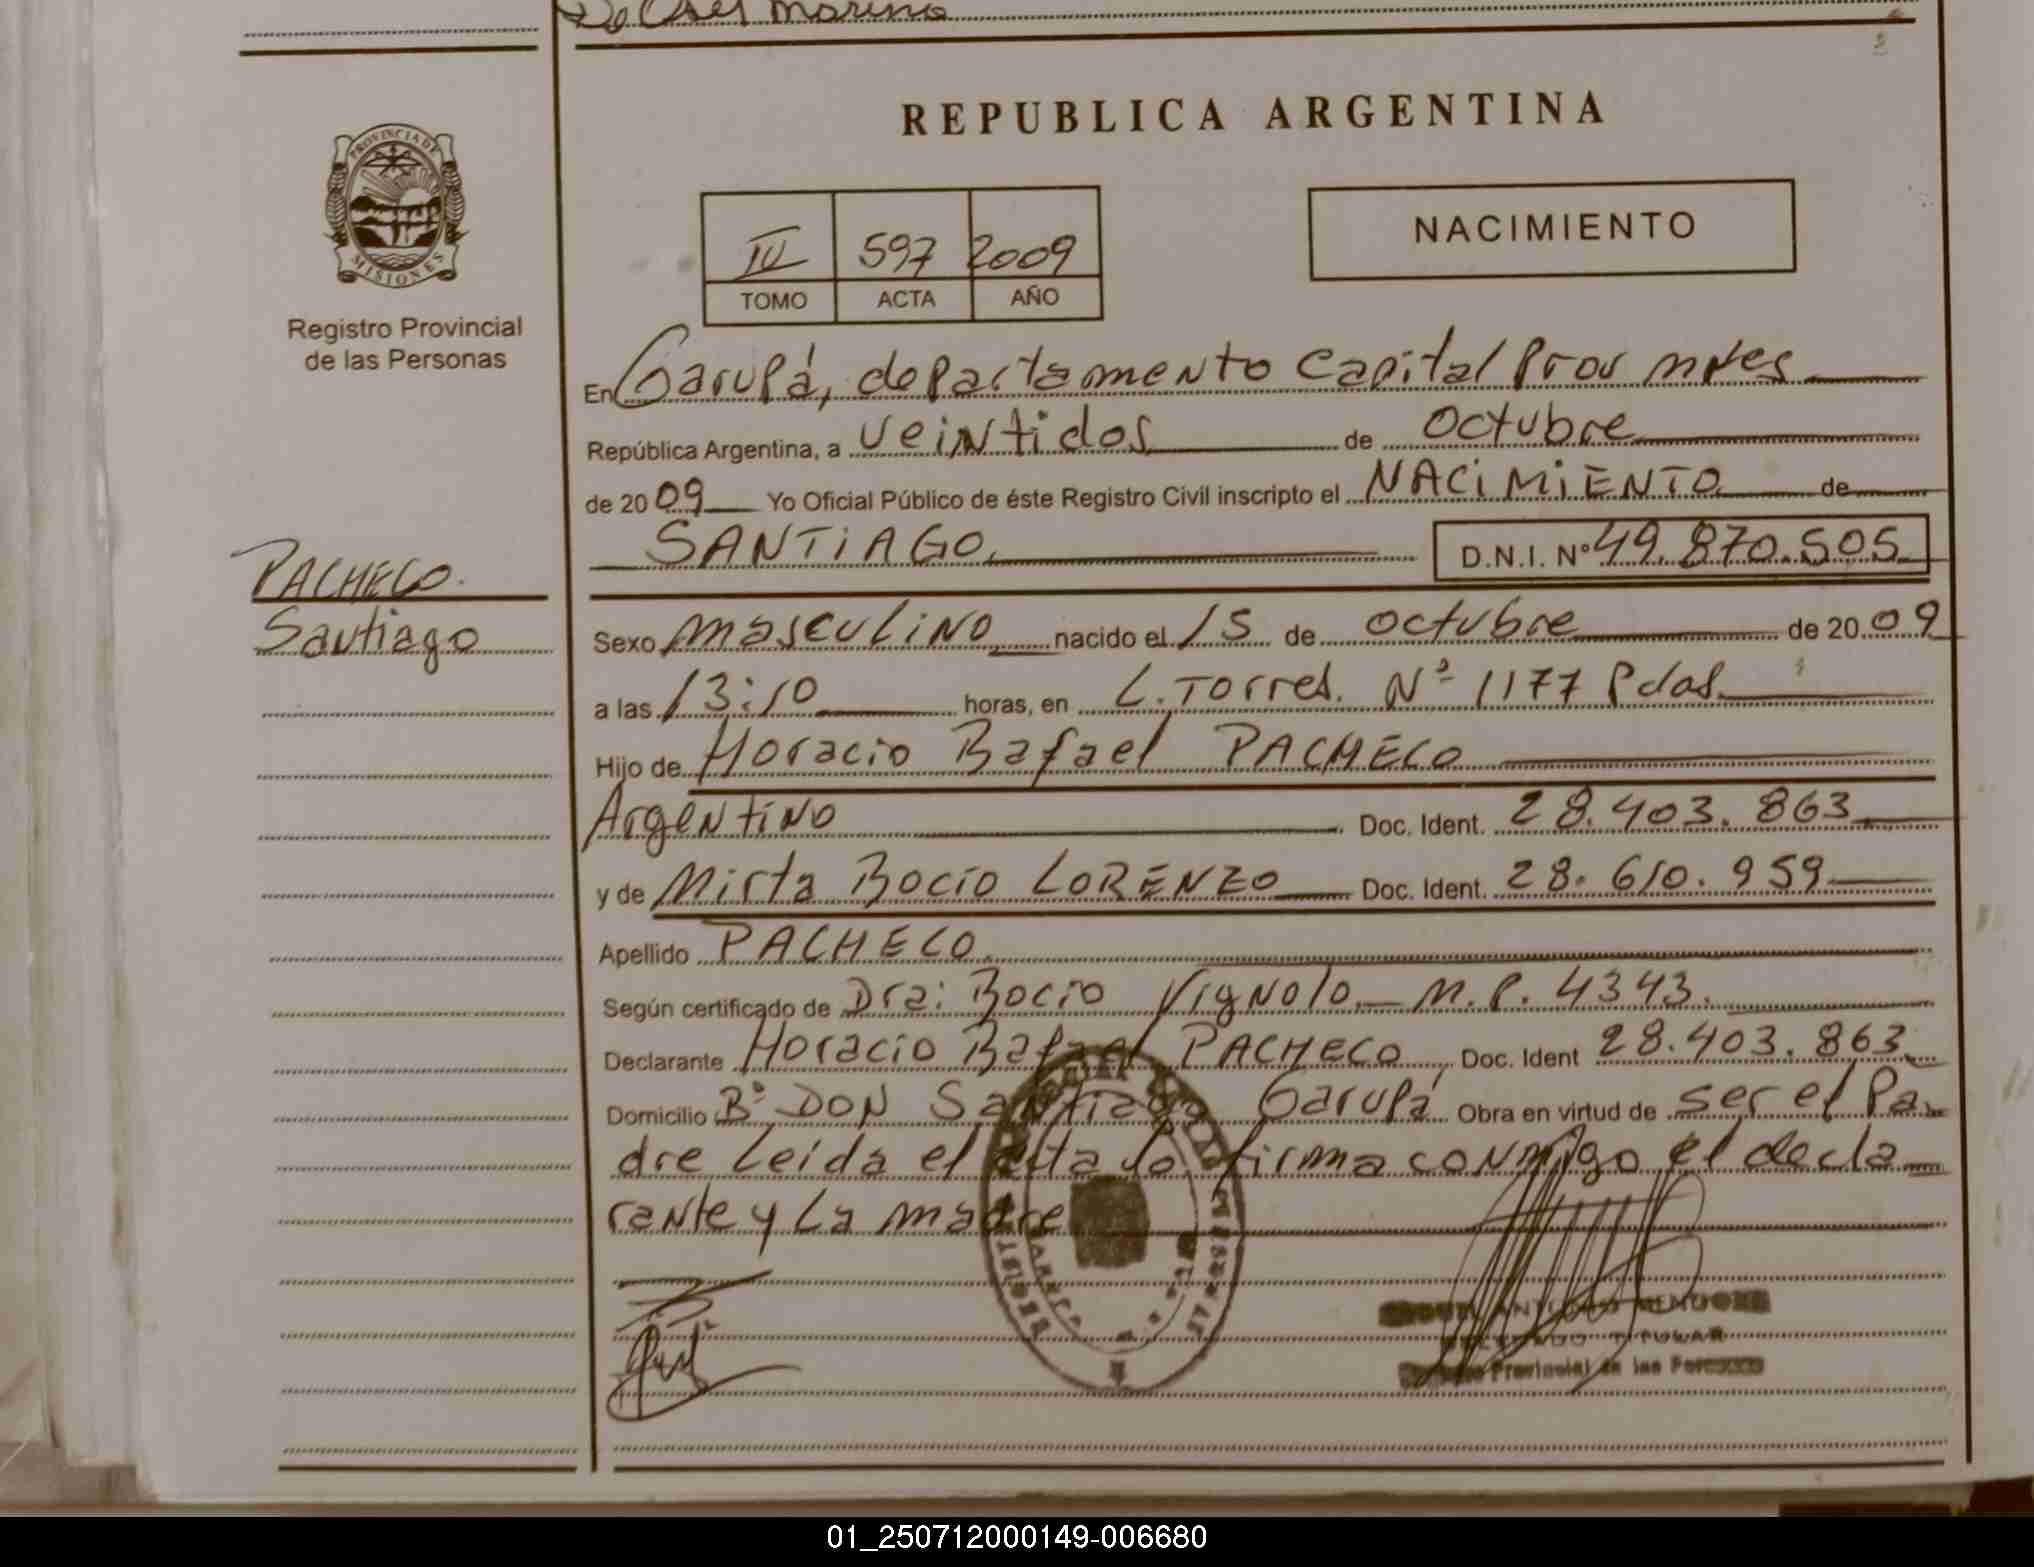 REPUBLICA ARGENTINA
PROVINCIA DE
MISIONES
Registro Provincial
de las Personas
NACIMIENTO
597 2009
TOMO ACTA AÑO
En Garupá, departamento Capital Prov mnes
República Argentina, a veintidos de octubre
de 2009 Yo Oficial Público de éste Registro Civil inscripto el NACIMIENTO de
SANTIAGO. D.N.I. Nº 49.870.505
PACHECO.
Santiago
Sexo masculino nacido el 15 de octubre de 2009
a las 13:10 horas, en L. Torres. Nº 1177 Pdas.
Hijo de Horacio Rafael PACHECO
Argentino Doc. Ident. 28.403.863
y de Mirta Rocio LORENZO Doc. Ident. 28.610.959
Apellido PACHECO.
Según certificado de Dra: Rocio Vignolo. M.P. 4343.
Declarante Horacio Rafael PACHECO Doc. Ident 28.403.863
Domicilio Bº DON Santiago Garupá Obra en virtud de ser el Pa-
dre Leida el acta la firma conmigo el decla
rante y La madre
ANTONIO
TITULAR
Provincial de las Personas
01_250712000149-006680